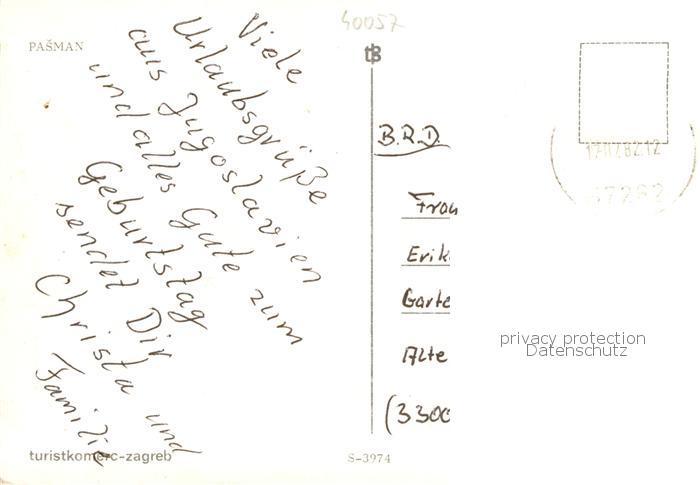 40057
PAŠMAN
Viele
Urlaubsgrüße
aus Jugoslavien
und alles Gute zum
Geburtstag
sendet Dir
Christa und
Familie
turistkomerc-zagreb
S-3974
tB
B.R.D.
Frau
Erik
Garte
Alte
(3300
57262
privacy protection
Datenschutz